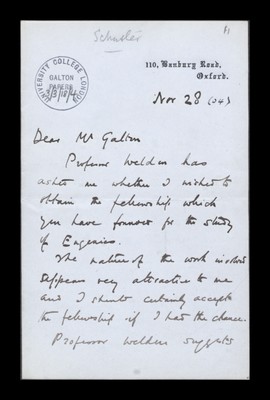 Schuster
UNIVERSITY COLLEGE LONDON
GALTON
PAPERS
110, Banbury Road,
Oxford.
Nov 28 (04)
Dear Mr Galton
Professor Weldon has
asked me whether I wished to
obtain the fellowship which
you have founded for the study
of Eugenics.
The nature of the work involved
appears very attractive to me
and I should certainly accept
the fellowship if I had the chance.
Professor Weldon suggests